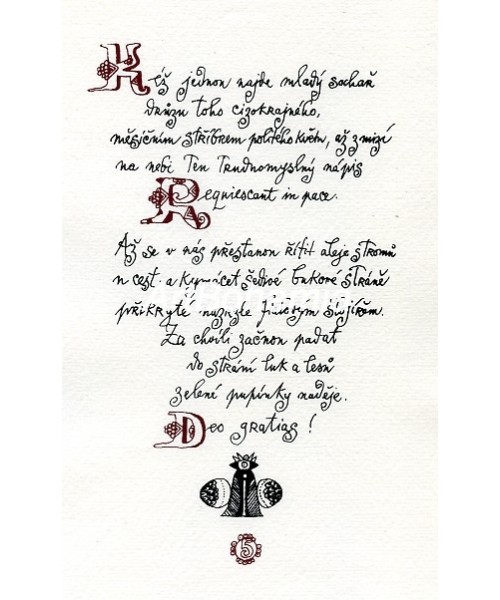 Kéž jednou najde mladý sochař
družu toho cizokrajného,
měsíčním stříbrem politého květu, až zmizí
na nebi Ten Trudnomyslný nápis
Requiescant in pace.
Až se v nás přestanou řítit aleje stromů
u cest a kymácet šedivé bukové stráně
přikryté
Za chvíli začnou padat
do strání luk a lesů
zelené pupínky naděje.
Deo gratias!
5